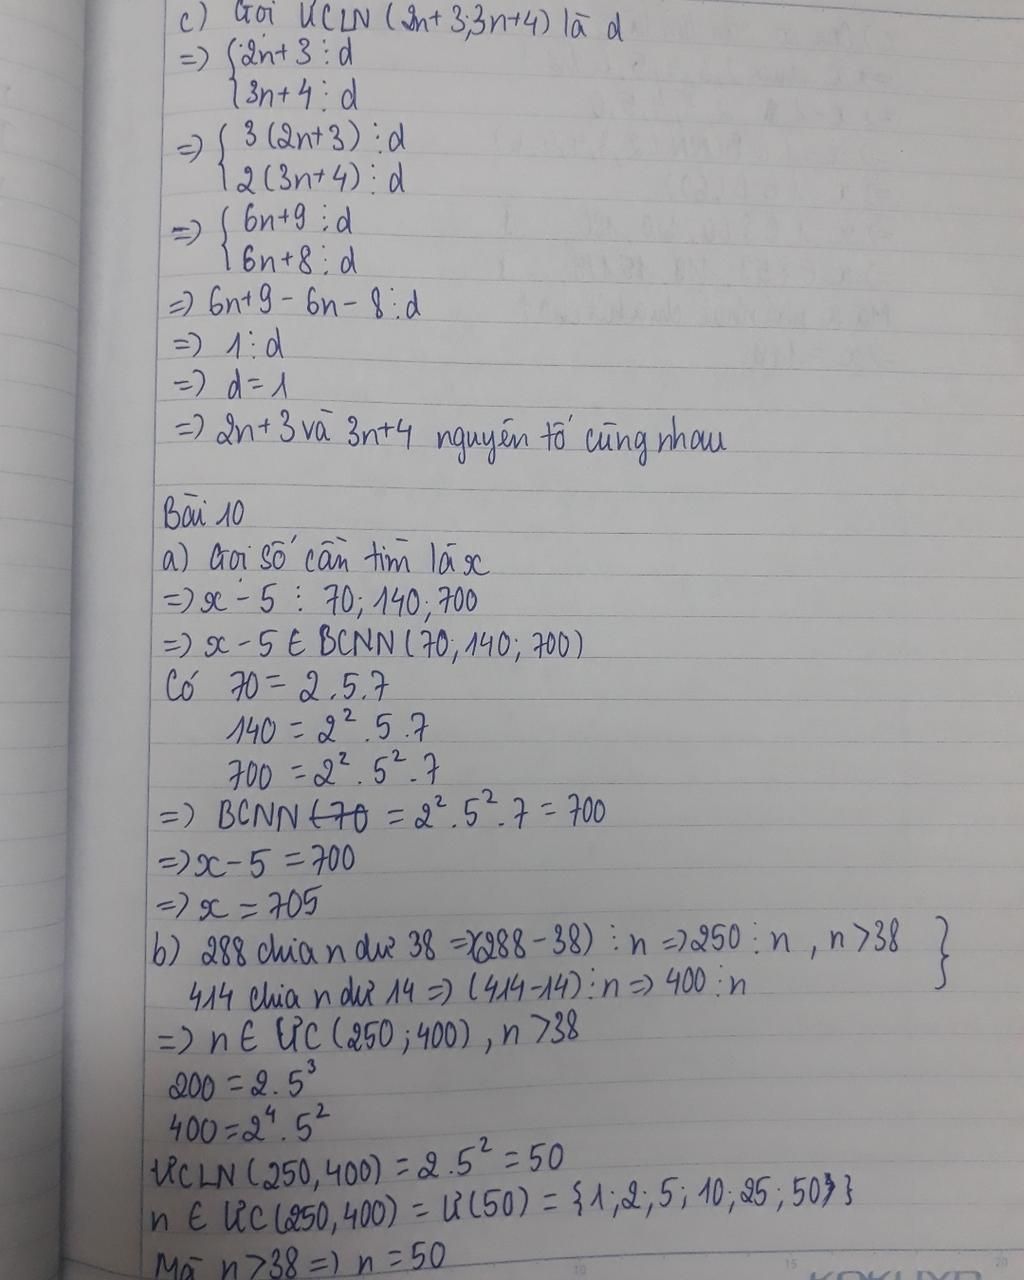 c) Gọi ƯCLN (2n+3;3n+4) là d
=> {2n+3 ⋮ d
{3n+4 ⋮ d
=> { 3(2n+3) ⋮ d
{ 2(3n+4) ⋮ d
=> { 6n+9 ⋮ d
{ 6n+8 ⋮ d
=> 6n+9 - 6n - 8 ⋮ d
=> 1 ⋮ d
=> d = 1
=> 2n+3 và 3n+4 nguyên tố cùng nhau
Bài 10
a) Gọi số cần tìm là x
=> x - 5 ⋮ 70; 140; 700
=> x - 5 ∈ BCNN (70; 140; 700)
Có 70 = 2.5.7
140 = 2².5.7
700 = 2².5².7
=> BCNN (70 = 2².5².7 = 700
=> x - 5 = 700
=> x = 705
b) 288 chia n dư 38 => (288-38) ⋮ n => 250 ⋮ n, n > 38 }
414 chia n dư 14 => (414-14) ⋮ n => 400 ⋮ n
=> n ∈ ƯC (250; 400), n > 38
200 = 2.5³
400 = 2⁴.5²
ƯCLN (250, 400) = 2.5² = 50
n ∈ ƯC (250, 400) = Ư(50) = {1; 2; 5; 10; 25; 50}
Mà n > 38 => n = 50
15
20
KOKUYO